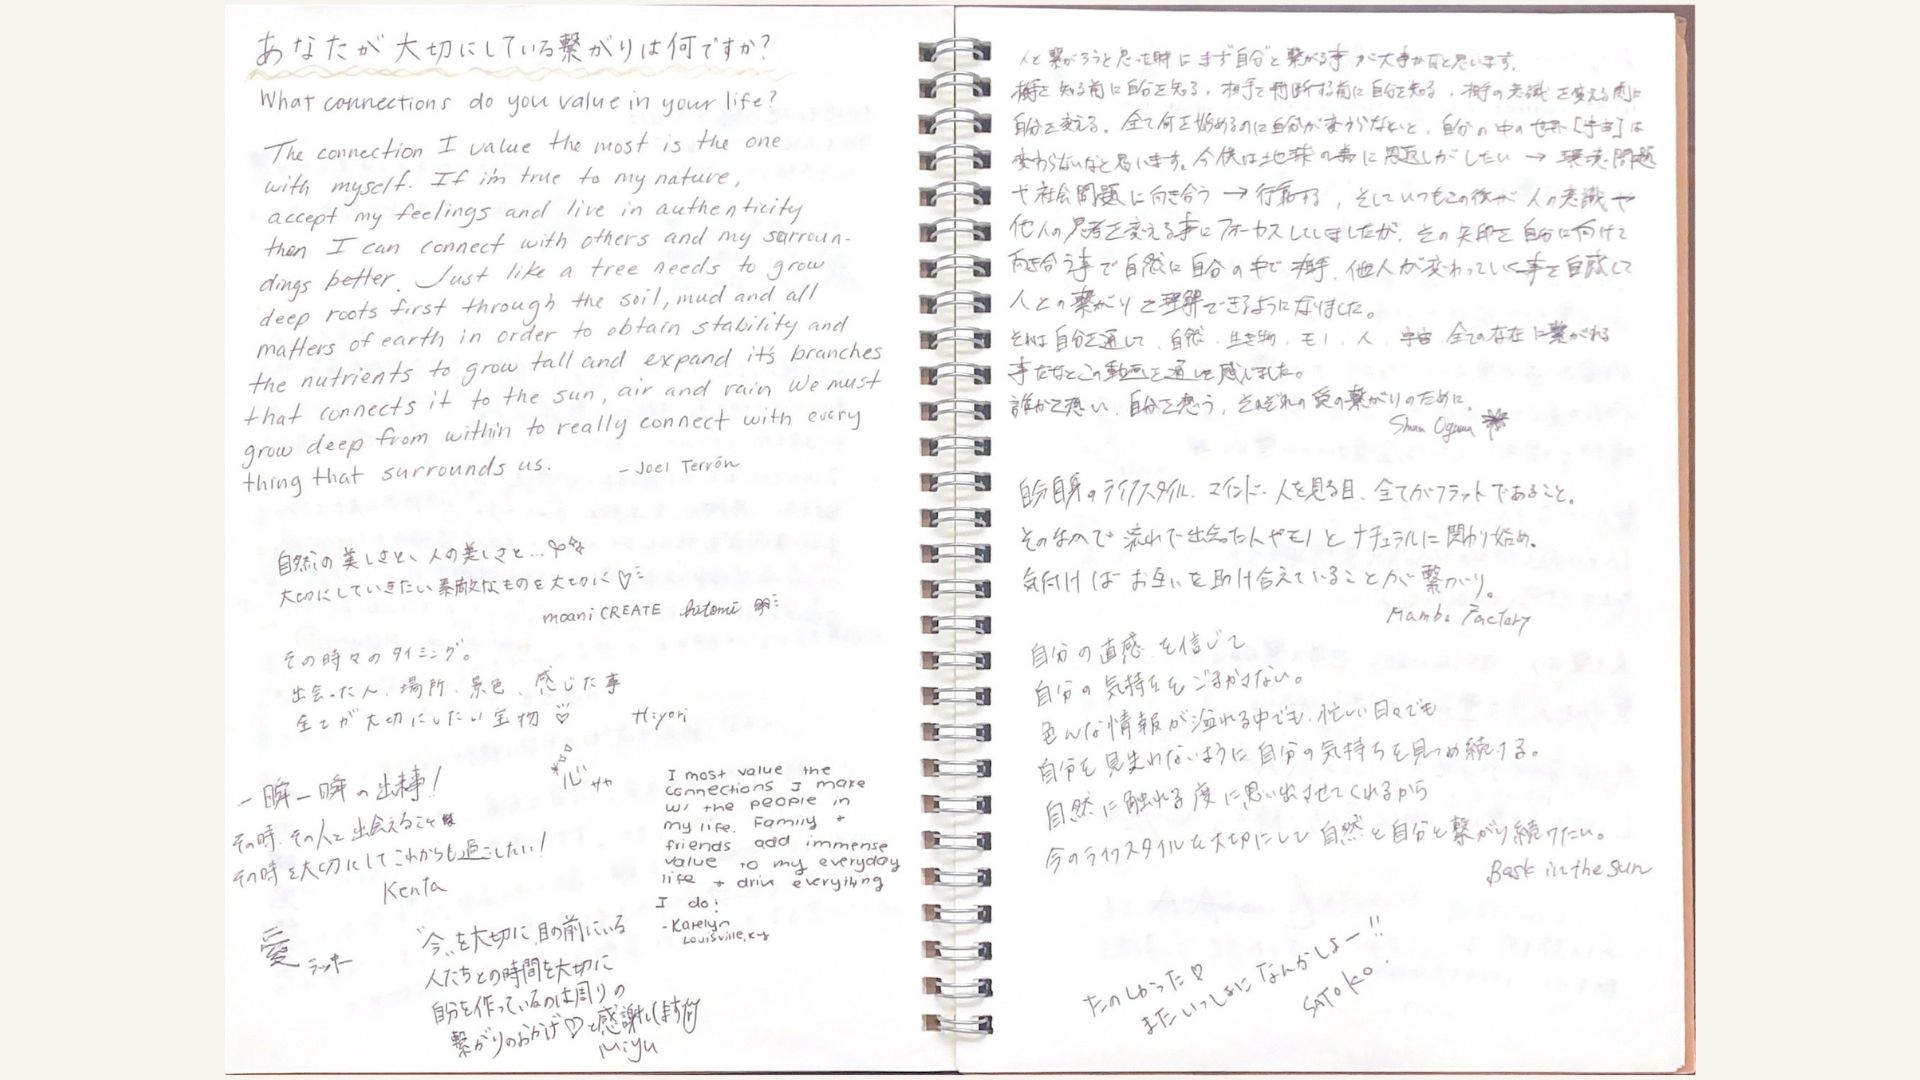 あなたが大切にしている繋がりは何ですか?
What connections do you value in your life?
The connection I value the most is the one
with myself. If i'm true to my nature,
accept my feelings and live in authenticity
then I can connect with others and my surroun-
dings better. Just like a tree needs to grow
deep roots first through the soil, mud and all
matters of earth in order to obtain stability and
the nutrients to grow tall and expand it's branches
that connects it to the sun, air and rain we must
grow deep from within to really connect with every
thing that surrounds us.
- Joel Terrón
自然の美しさと、人の美しさと...
大切にしていきたい素敵なものを大切に♡
moani CREATE hitomi
その時々のタイミング。
出会った人、場所、景色、感じた事
全てが大切にしたい宝物♡
Hiyori
一瞬一瞬の出来事!
その時、その人と出会えること
その時を大切にしてこれからも過ごしたい!
Kenta
I most value the
connections I make
w/ the people in
my life. Family +
friends add immense
value to my everyday
life + driv everything
I do!
- Katelyn
Louisville, Ky
愛
"今"を大切に、目の前にいる
人たちとの時間を大切に
自分を作っているのは周りの
繋がりのおかげ♡と感謝します
Miyu
人と繋がろうと思った時にまず自分と繋がる事が大事かなと思います。
相手を知る前に自分を知る、相手を判断する前に自分を知る、相手の意識を変える前に
自分を変える。全て何を始めるのに自分が変わらないと、自分の中の世界[宇宙]は
変わらないなと思います。今僕は地球の為に恩返しがしたい → 環境問題
や社会問題に向き合う → 行動する、そしていつもこの後が人の意識や
他人の思考を変える事にフォーカスしてしましたが、その矢印を自分に向けて
向き合う事で自然に自分の中で相手、他人が変わっていく事を自感して
人との繋がりを理解できるようになりました。
それは自分を通して、自然、生き物、モノ、人、宇宙、全ての存在に繋がれる
事だなとこの動画を通して感じました。
誰かを想い、自分を想う、それぞれの愛の繋がりのために。
自分自身のライフスタイル、マインド、人を見る目、全てがフラットであること。
そのなかで流れで出会った人やモノとナチュラルに関わり始め、
気付けばお互いを助け合えていることが繋がり。
Mambo Factory
自分の直感を信じて
自分の気持ちをごまかさない。
色んな情報が溢れる中でも、忙しい日々でも
自分を見失れないように自分の気持ちを見つめ続ける。
自然に触れる度に思い出させてくれるから
今のライフスタイルを大切にして自然と自分と繋がり続けたい。
Bask in the Sun
たのしかった♡
またいっしょになんかしよー!!
SATOKO.